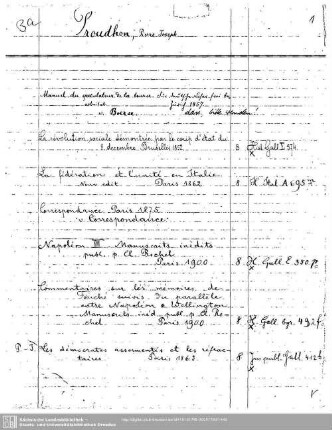 3a Proudhon, Pierre Joseph 1
Manuel du spéculateur de la bourse.
Paris 1857
v. Bourse.
La révolution sociale démontrée par le coup d'état du
2. décembre. Bruxelles 1852 8 Hist. Gall. I 574
La fédération et l'unité en Italie
Nouv. édit. Paris 1862 8 H. Ital. A 695
Correspondance. Paris 1875
v. Correspondance.
Napoléon III. Manuscrits inédits
publ. p. Cl. Rochel
Paris 1900 8 H. Gall. E 350
Commentaires sur les mémoires de
Fouché suivis du parallèle
entre Napoléon & Wellington
Manuscrits inéd. publ. p. Cl. Ro-
chel Paris 1900 8 H. Gall. 492
P-J. Les démocrates assermentés et les réfrac-
taires Paris 1863 8 Jus publ. Gall. 412
Sächsische Landesbibliothek -
Staats- und Universitätsbibliothek Dresden